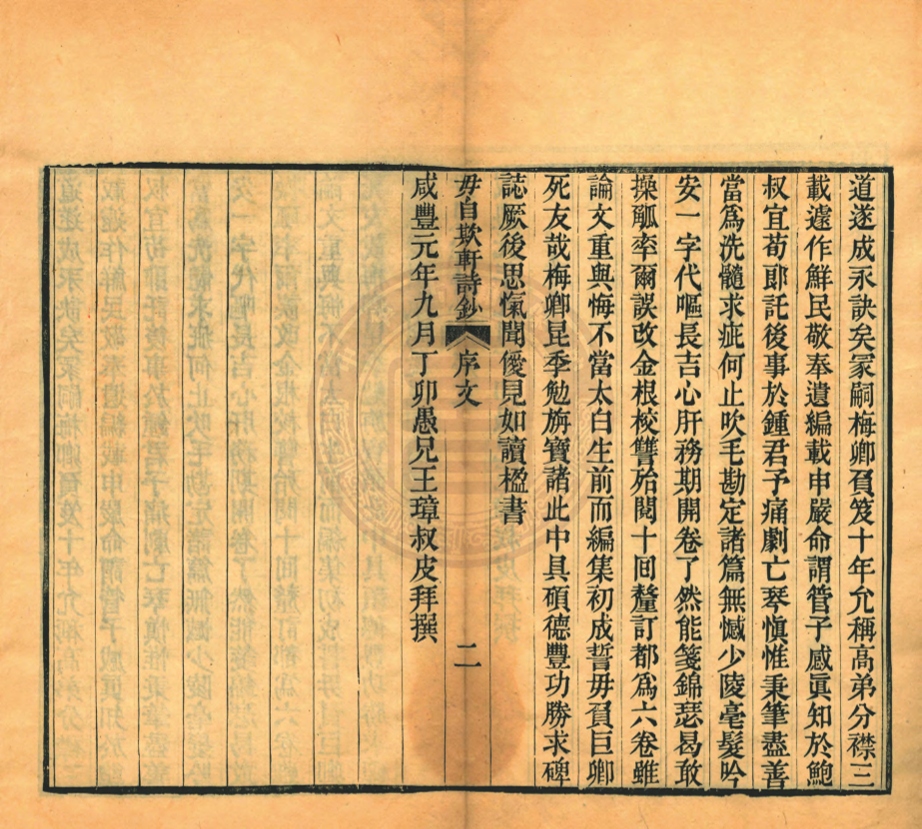 道遂成永訣矣冢嗣梅卿負笈十年允稱高弟分襟三
載遽作鮮民敬奉遺編載申嚴命謂管子感眞知於鮑
叔宜荀郎託後事於鍾君予痛劇亡琴愼惟秉筆盡善
當爲洗髓求疵何止吹毛勘定諸篇無憾少陵毫髮吟
安一字代嘔長吉心肝務期開卷了然能箋錦瑟曷敢
操觚率爾誤改金根校讐殆閱十回釐訂都爲六卷雖
論文重與悔不當太白生前而編集初成誓毋負巨卿
死友哉梅卿昆季勉旃寶諸此中具碩德豐功勝求碑
誌厥後思愾聞僾見如讀楹書
毋自欺軒詩鈔 序文 二
咸豐元年九月丁卯愚兄王璋叔皮拜撰